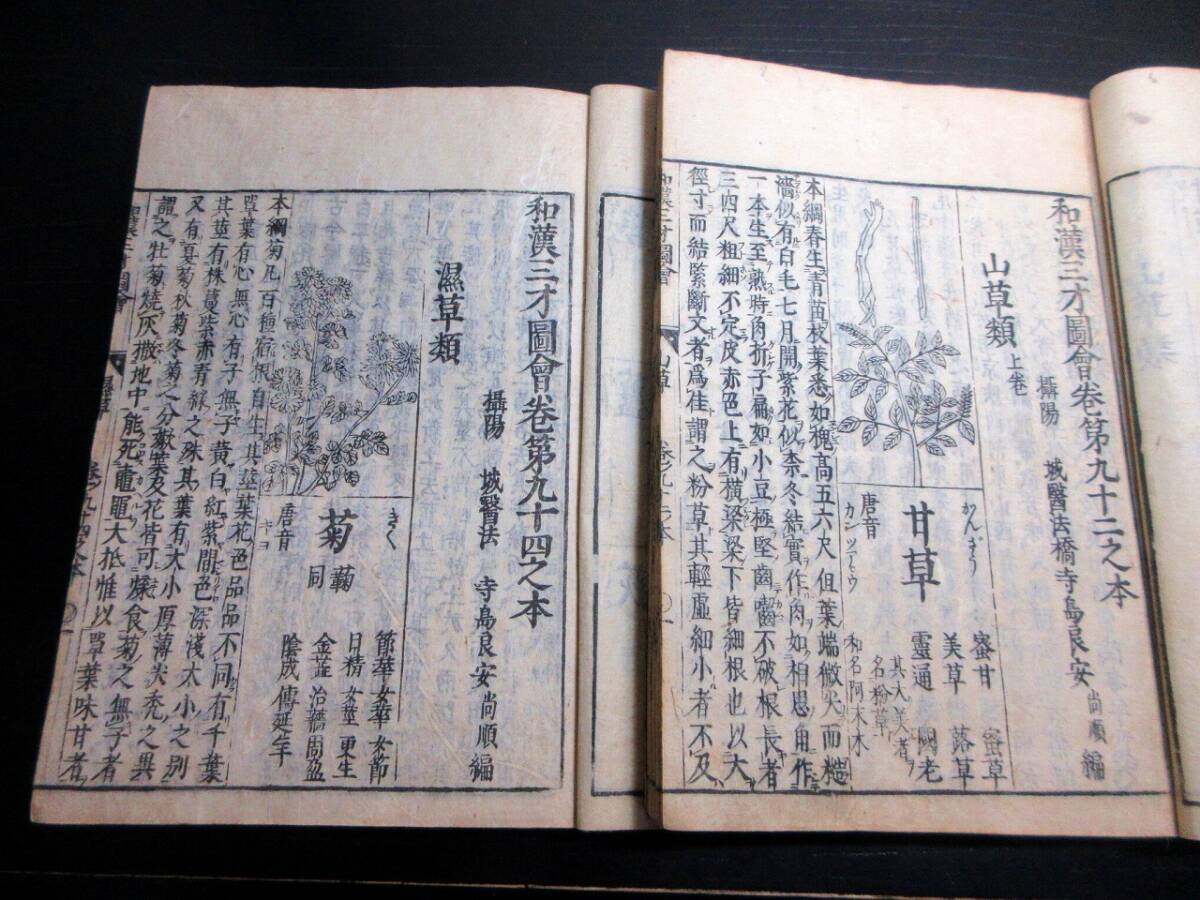 和漢三才圖會卷第九十二之本
攝陽　城醫法橋寺島良安尚順編
山草類上卷
かんざう
甘草
唐音
カンツァウ
蜜甘　蜜草
美草　蕗草
靈通　國老
其大美者
名粉草
和名阿末木
本綱春生青苗枝葉悉如槐高五六尺但葉端微尖而糙
濇似有白毛七月開紫花似柰冬結實作角如相思角作
一本生至熟時角折子扁如小豆極堅齒嚙不破根長者
三四尺粗細不定皮赤色上有橫梁梁下皆細根也以大
徑寸而結緊斷文者爲佳謂之粉草其輕虛細小者不及
和漢三才圖會
山草
卷之九十二本
和漢三才圖會卷第九十四之本
攝陽　城醫法　寺島良安尚順編
濕草類
きく
菊
蘜同
唐音
キヨ
節華　女華　女節
日精　女莖　更生
金蕋　治蘠　周盈
陰成　傅延年
本綱菊凡百種宿根自生其莖葉花色品品不同有千葉
單葉有心無心有子無子黃白紅紫間色深淺大小之別
其莖有株蔓紫赤青綠之殊其葉有大小厚薄尖禿之異
又有夏菊秋菊冬菊之分嫩葉及花皆可煠食菊之無子者
謂之牡菊燒灰撒地中能死鼃黽大抵惟以單葉味甘者
和漢三才圖會
濕草
卷之九十四本